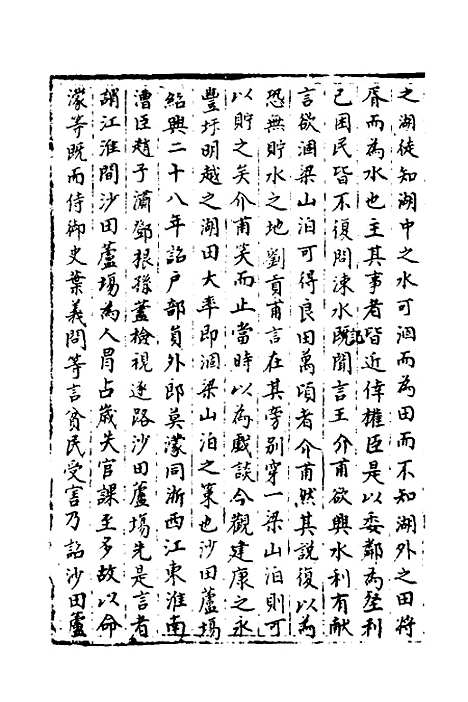 之湖徒知湖中之水可涸而為田而不知湖外之田将
胥而為水也主其事者皆近倖權臣是以委鄰為壑利
己困民皆不復問涑水記聞言王介甫欲興水利有献
言欲涸梁山泊可得良田萬頃者介甫然其說復以為
恐無貯水之地劉貢甫言在其旁别穿一梁山泊則可
以貯之矣介甫笑而止當時以為戯談今觀建康之永
豐圩明越之湖田大率即涸梁山泊之策也沙田蘆塲
紹興二十八年詔户部員外郎莫濛同浙西江東淮南
漕臣趙子潚鄧根孫藎檢視逐路沙田蘆塲先是言者
謂江淮間沙田蘆塲為人冒占嵗失官課至多故以命
濛等既而侍御史葉義問等言貧民受害乃詔沙田蘆